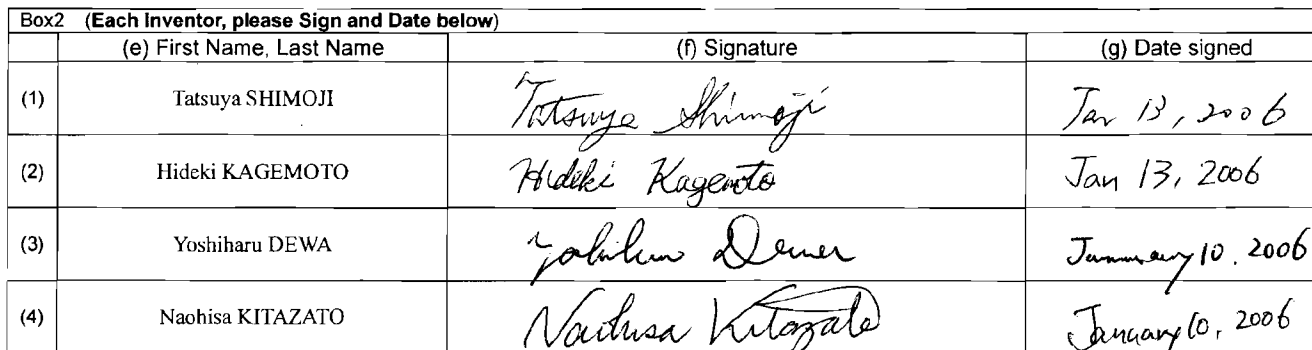 Box2 (Each Inventor, please Sign and Date below)
(e) First Name, Last Name (f) Signature (g) Date signed
(1) Tatsuya SHIMOJI Tatsuya Shimoji Jan 13, 2006
(2) Hideki KAGEMOTO Hideki Kagemoto Jan 13, 2006
(3) Yoshiharu DEWA Yoshiharu Dewa January 10. 2006
(4) Naohisa KITAZATO Naohisa Kitazato January 10, 2006